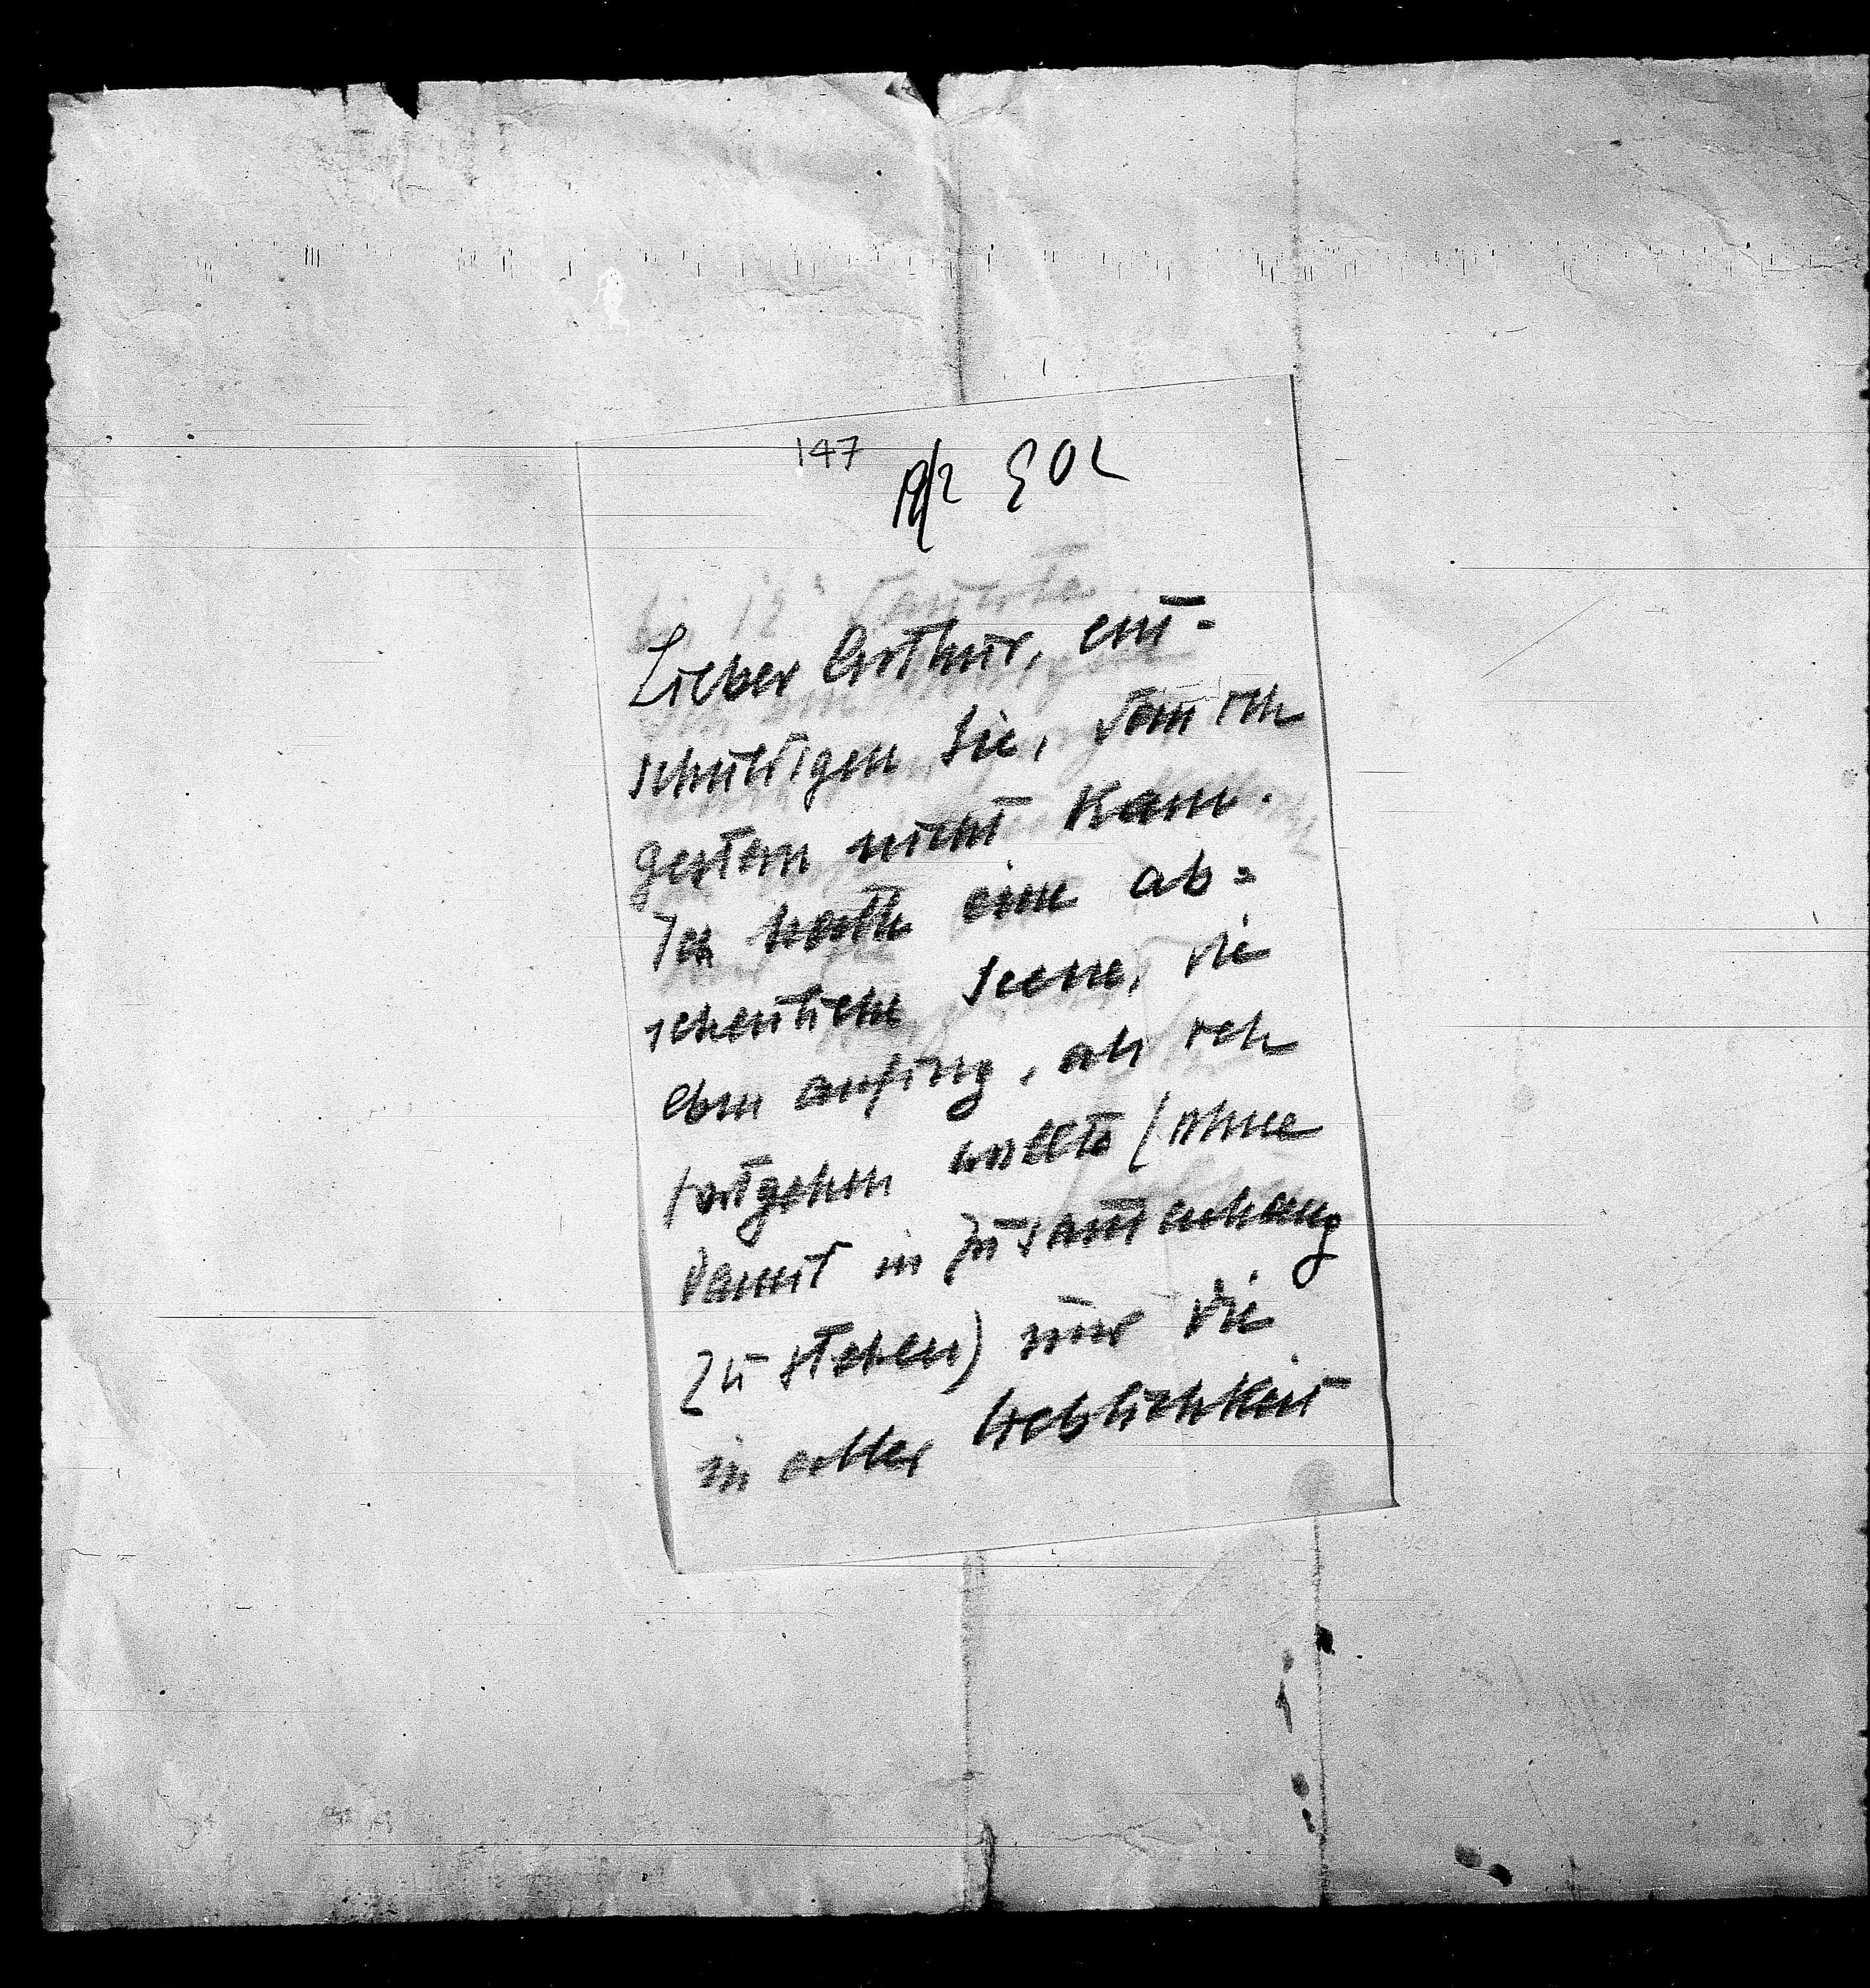 147 19/2 902
Lieber Arthur, ent-
schuldigen Sie, dass ich
gestern nicht kam.
Ich hatte eine ab=
scheuliche Scene, die
eben anfing, als ich
fortgehen wollte (ohne
damit in Zusam̄enhang
zu stehen) und die
in aller Lieblichkeit